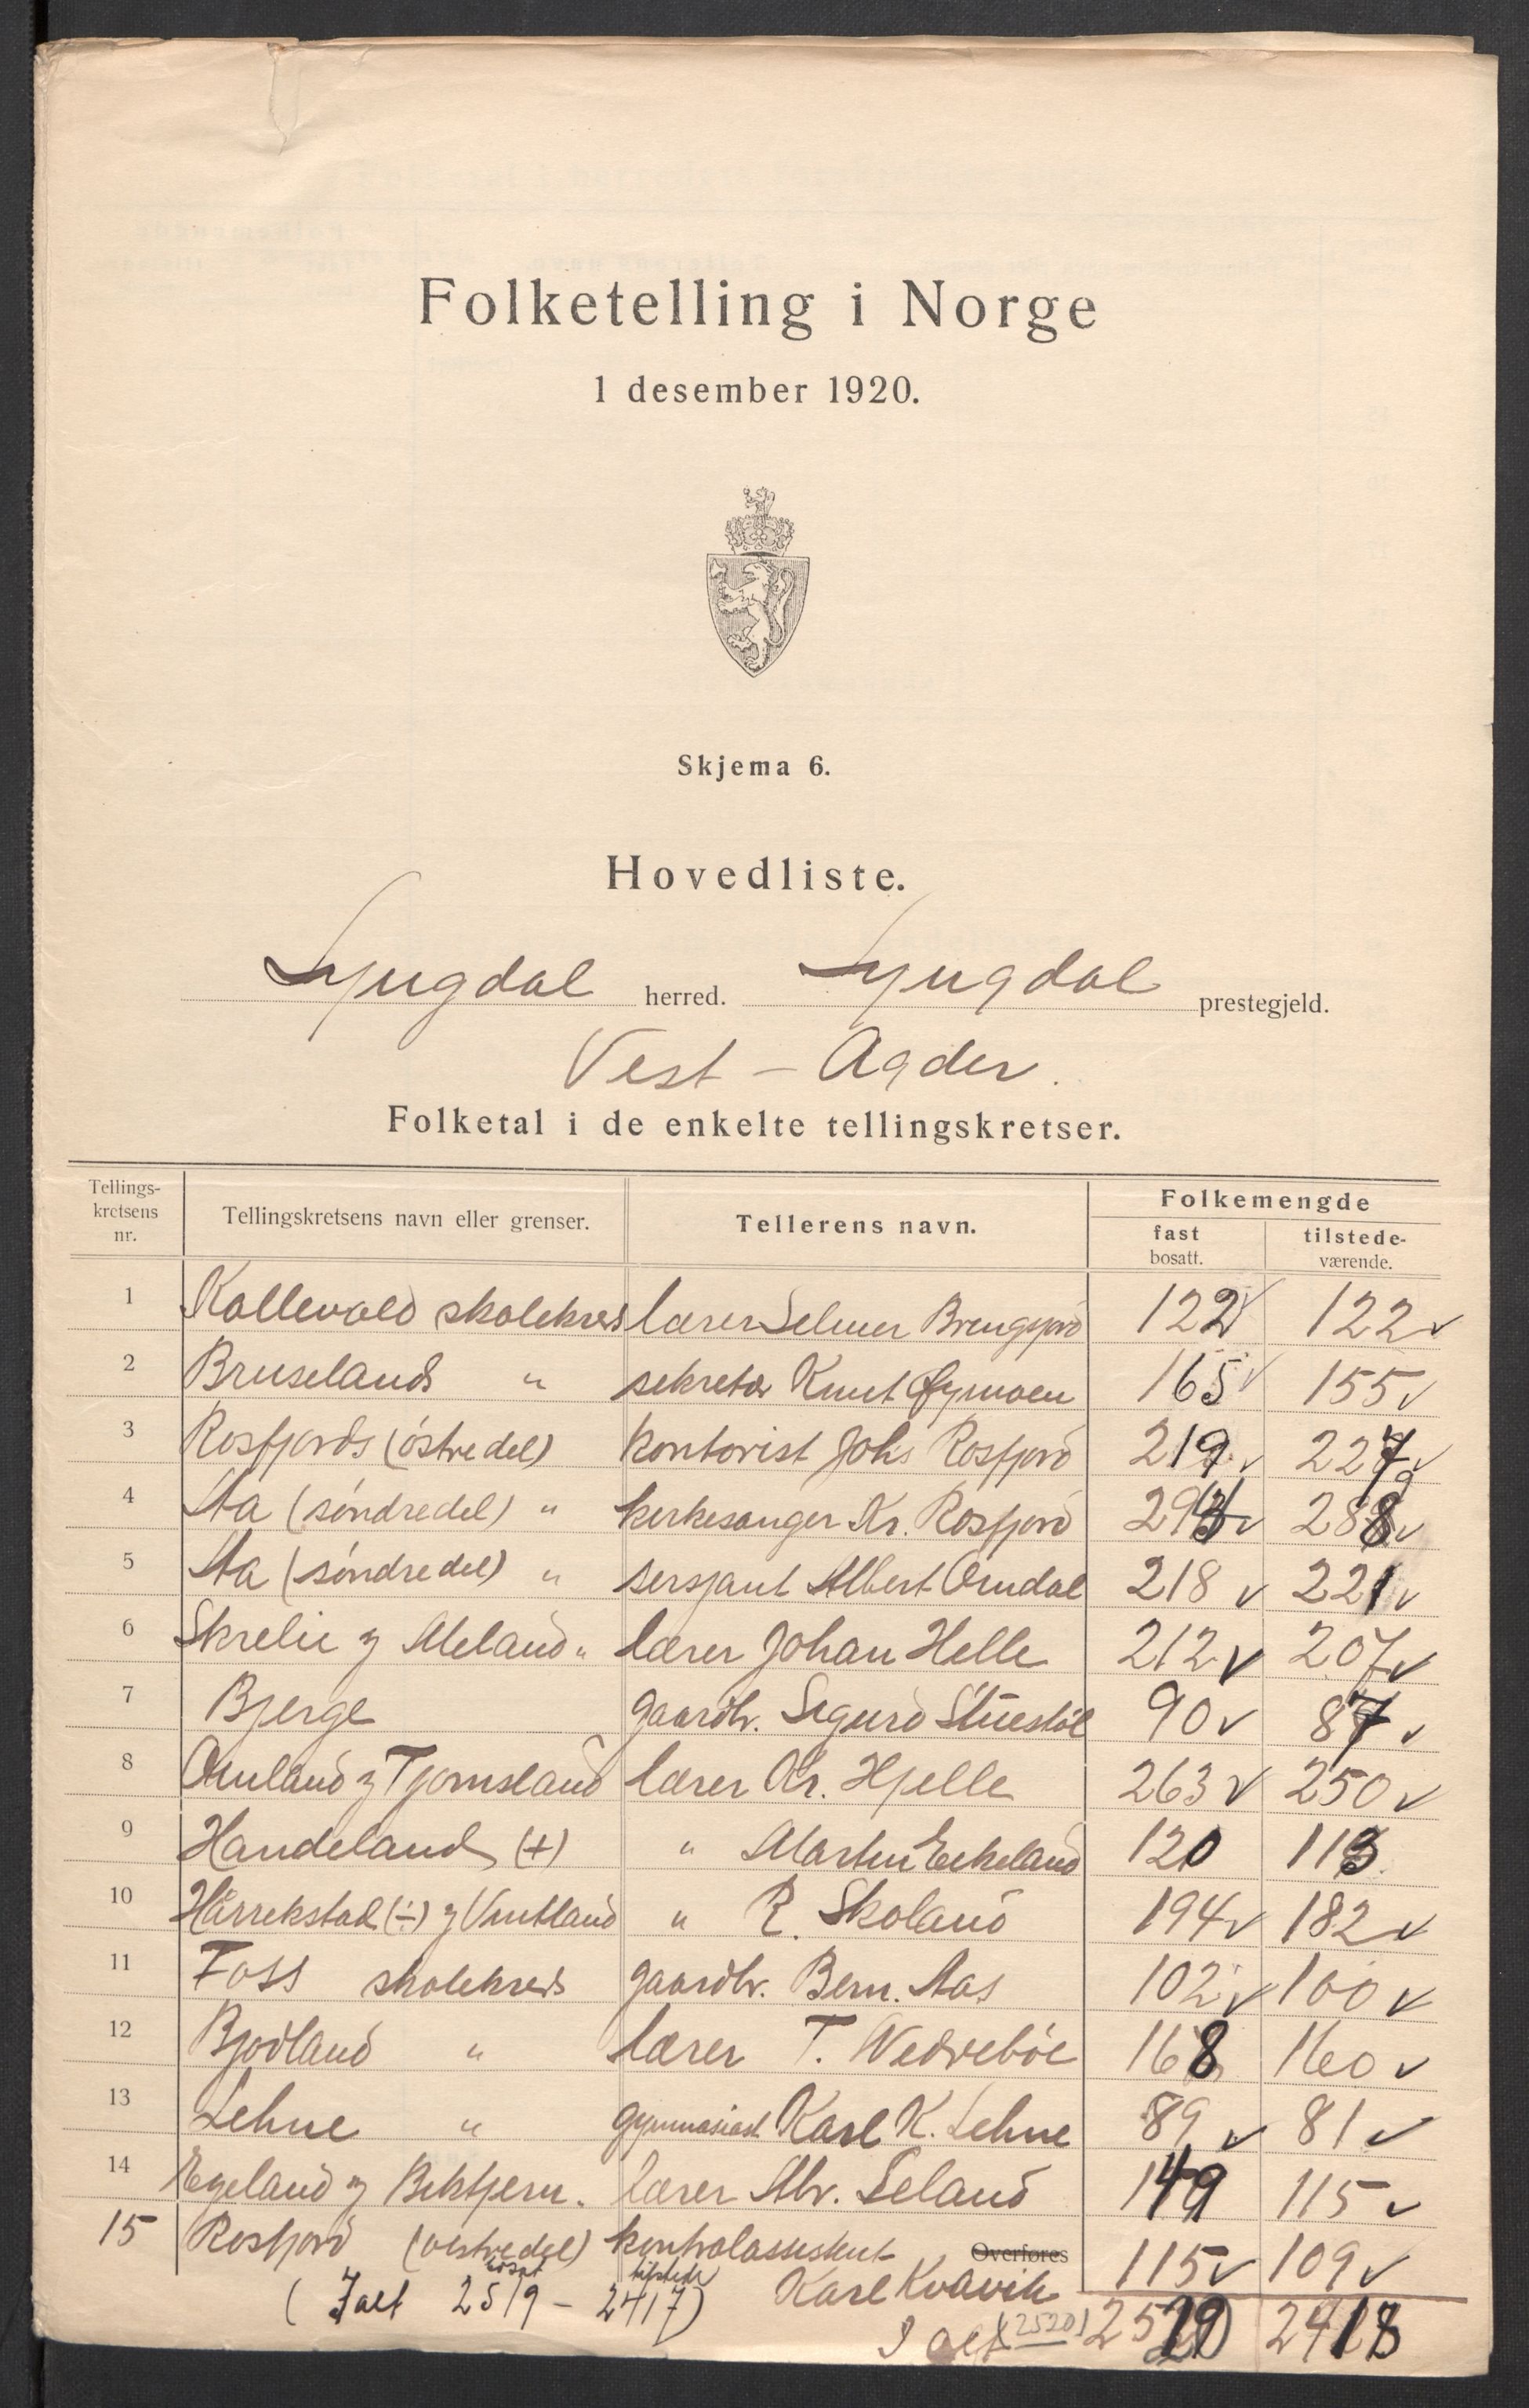 Folketelling i Norge
1 desember 1920.
Skjema 6.
Hovedliste.
Lyngdal herred. Lyngdal prestegjeld.
Vest-Agder.
Folketal i de enkelte tellingskretser.
Tellings-kretsens nr. Tellingskretsens navn eller grenser. Tellerens navn. Folkemengde
fast bosatt. tilstede-værende.
1 Kallevold skolekreds lærer Selmer 122 122
2 Bruselands " sekretær Knut 165 155
3 Rosfjords (östre del) kontorist Johs Rosfjord 219 227
4 (söndre del) " kirkesanger Kr. Rosfjord 29 288
5 (söndre del) " sersjant Albert Omdal 218 221
6 Skrelie og Meland " lærer Johan Helle 212 207
7 Bjerge gaardbr. Sigurd 90 87
8 Omland og Tjomsland lærer Kr. Hjelle 263 250
9 Handeland (+) " Martin Eikeland 120 113
10 Hårrekstad (÷) og Vintland " R. Skoland 194 182
11 Foss skolekreds gaardbr. Bern. Aas 102 100
12 Bjodland " lærer T. Wedveböe 168 160
13 Lehne " gymnasiast Karl K. Lehne 89 81
14 Egeland og lærer Seland 149 115
15 Rosfjord (vestre del) kontrolassistent Overføres 115 109
Karl Kvavik
(Ialt bosat 2519 - tilstede 2417)
I alt (2520) 2519 2418